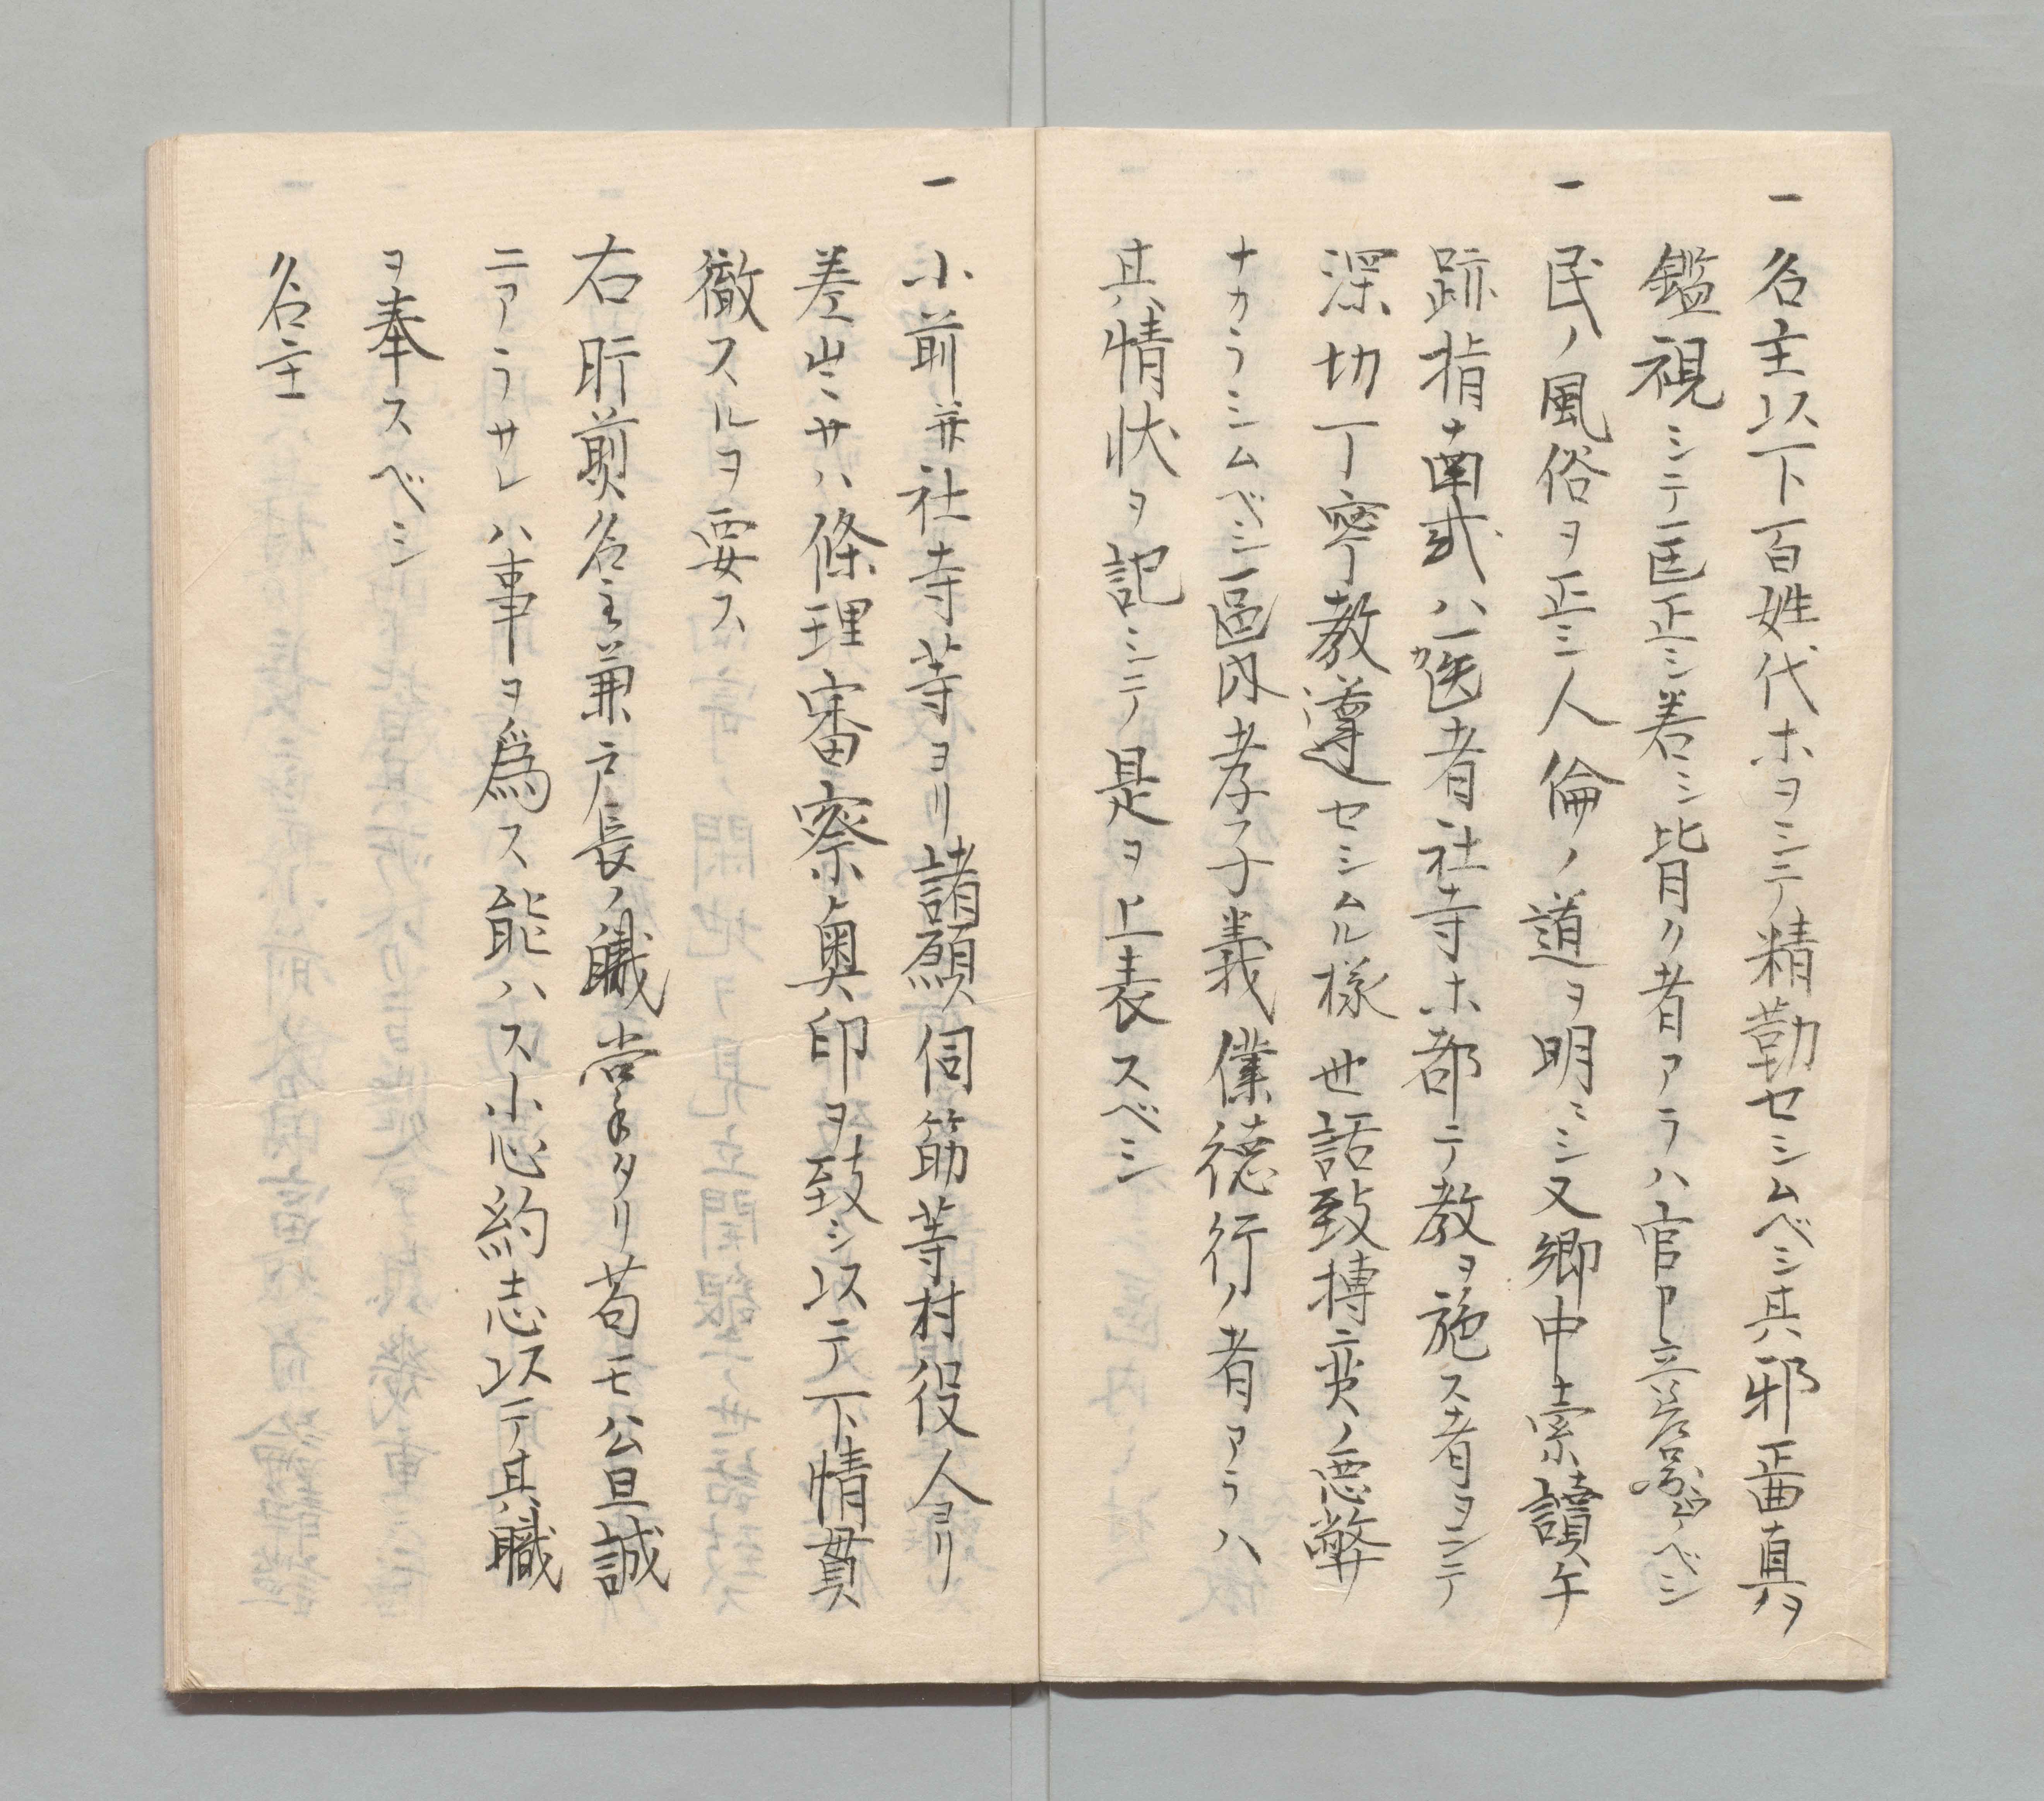 一 名主以下百姓代ホヲシテ精勤セシムベシ其邪正曲直ヲ
鑑視シテ匡正シ若シ背ク者アラハ官ニ立
一 民ノ風俗ヲ正シ人倫ノ道ヲ明ニシ又郷中素讀手
跡指南或ハ医者社寺ホ都テ教ヲ施ス者ヲシテ
深切丁寧教導セシムル様世話致博奕ノ悪弊
ナカラシムベシ區内孝子義僕徳行ノ者アラハ
其情状ヲ記シテ是ヲ上表スベシ
一 小前并社寺等ヨリ諸願伺筋等村役人ヨリ
差出サハ條理審察奥印ヲ致シ以テ下情貫
徹スルヲ要ス
右所前名主兼戸長ノ職掌タリ苟モ公且誠
ニアラサレハ事ヲ爲ス能ハス小心約志以テ其職
ヲ奉スベシ
名主